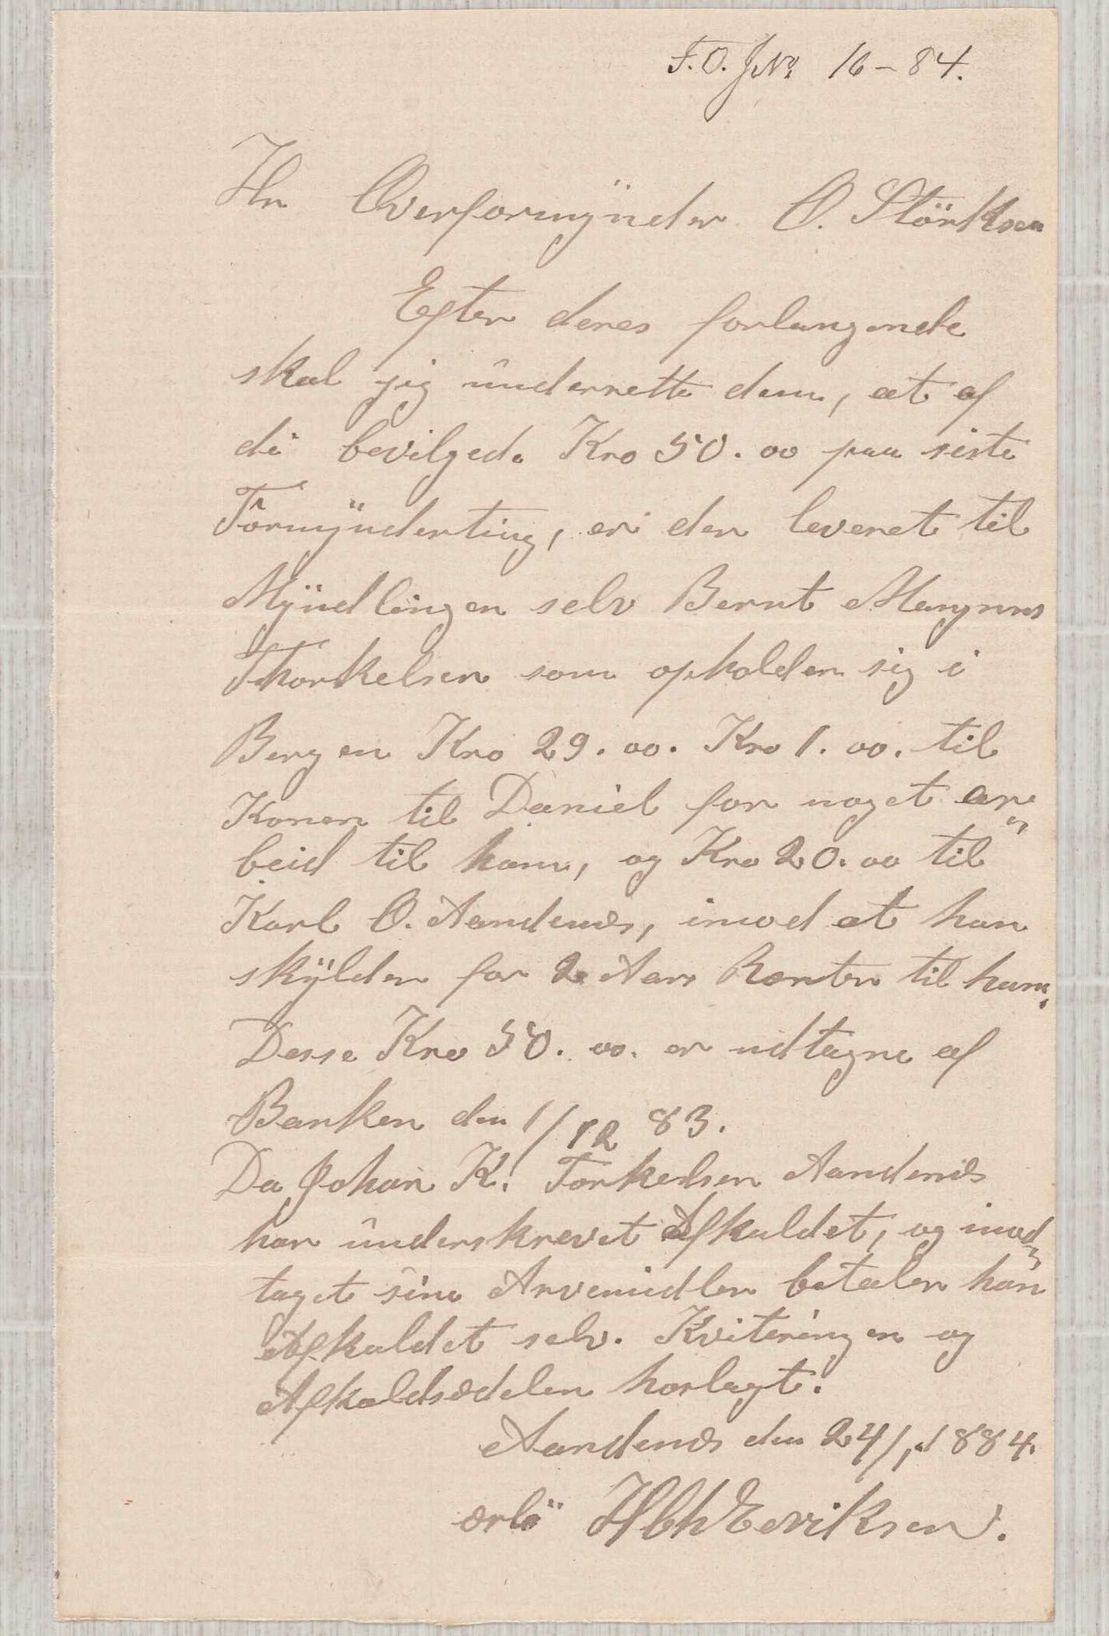 F.O.J№ 16-84.
Hr Overformÿnder O. Störksen
Efter deres forlangende
skal jeg underrette dem, at af
de bevilgede Kro 50.00 paa siste
Formÿnderting, er der leveret til
Mÿndlingen selv Bernt Mangnus
Thorkelsen som opholder sig i
Bergen Kro 29.00. Kro 1.00. til
Konen til Daniel for noget ar„
beid til ham, og Kro 20.00 til
Karl O. Aandenæs, imod at han
skÿlder for 2 Aars Renter til ham.
Desse Kro 50.00. er udtagne af
Banken den 1/12 83.
Da Johan K. Torkelsen Aandenæs
har underskrevet Afkaldet, og imod„
taget sine Arvemidler betaler han
Afkaldet selv. Kviteringen og
Afkaldsedelen horlagt.
Aandenæs den 24/1 1884.
ærb Eeriksen.